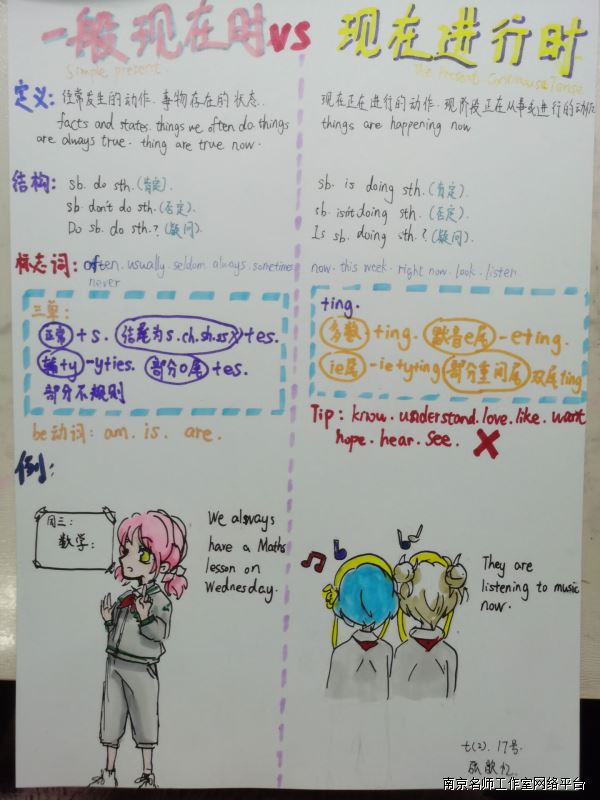 一般现在时vs 现在进行时
Simple present
The Present Continuous Tense
定义: 经常发生的动作. 事物存在的状态.
facts and states. things we often do. things
are always true. thing are true now.
现在正在进行的动作. 现阶段正在从事或进行的动作
things are happening now
结构: sb. do sth. (肯定).
sb don't do sth. (否定).
Do sb. do sth.? (疑问).
sb. is doing sth. (肯定).
sb. isn't doing sth. (否定).
Is sb. doing sth.? (疑问).
标志词: often. usually. seldom. always. sometimes
never
now. this week. right now. look. listen.
三单:
正常+s. 结尾为s.ch.sh.ss x+es.
辅+y-y+ies. 部分o尾+es.
部分不规则
ting.
多数+ing. 默音e尾-e+ing.
ie尾-ie+y+ing 部分重闭尾双尾+ing
be动词: am. is. are.
Tip: know. understand. love. like. want
hope. hear. see. X
例:
周三:
数学:
We always
have a Maths
lesson on
Wednesday.
They are
listening to music
now.
七(2). 17号.
南京名师工作室网络平台